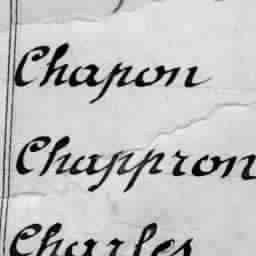 Chapon
Chappron
Charles